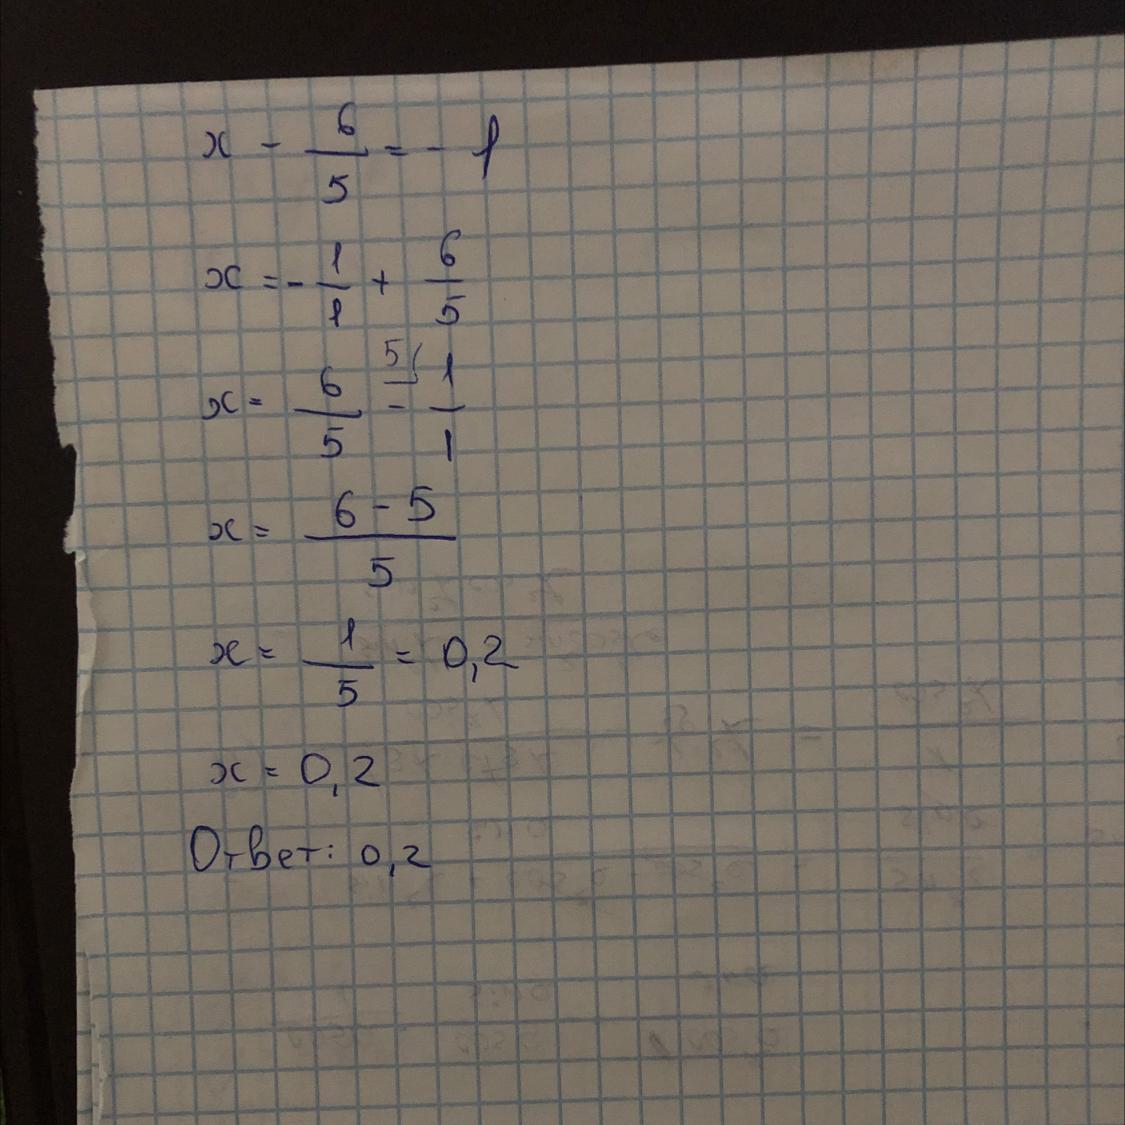 x - 6/5 = - 1
x = - 1/1 + 6/5
x = 6/5 - 5( 1/1
x = 6 - 5/5
x = 1/5 = 0,2
x = 0,2
Ответ: 0,2